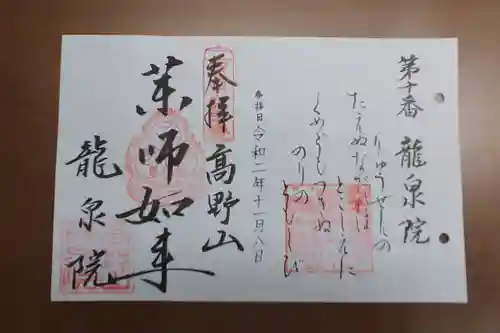 第十番 龍泉院
りゅうせんの
たえぬながれは
とこしえに
くめどもつきぬ
のりの
とうしび
参拝日 令和二年十一月八日
奉拝 高野山
薬師如来
龍泉院